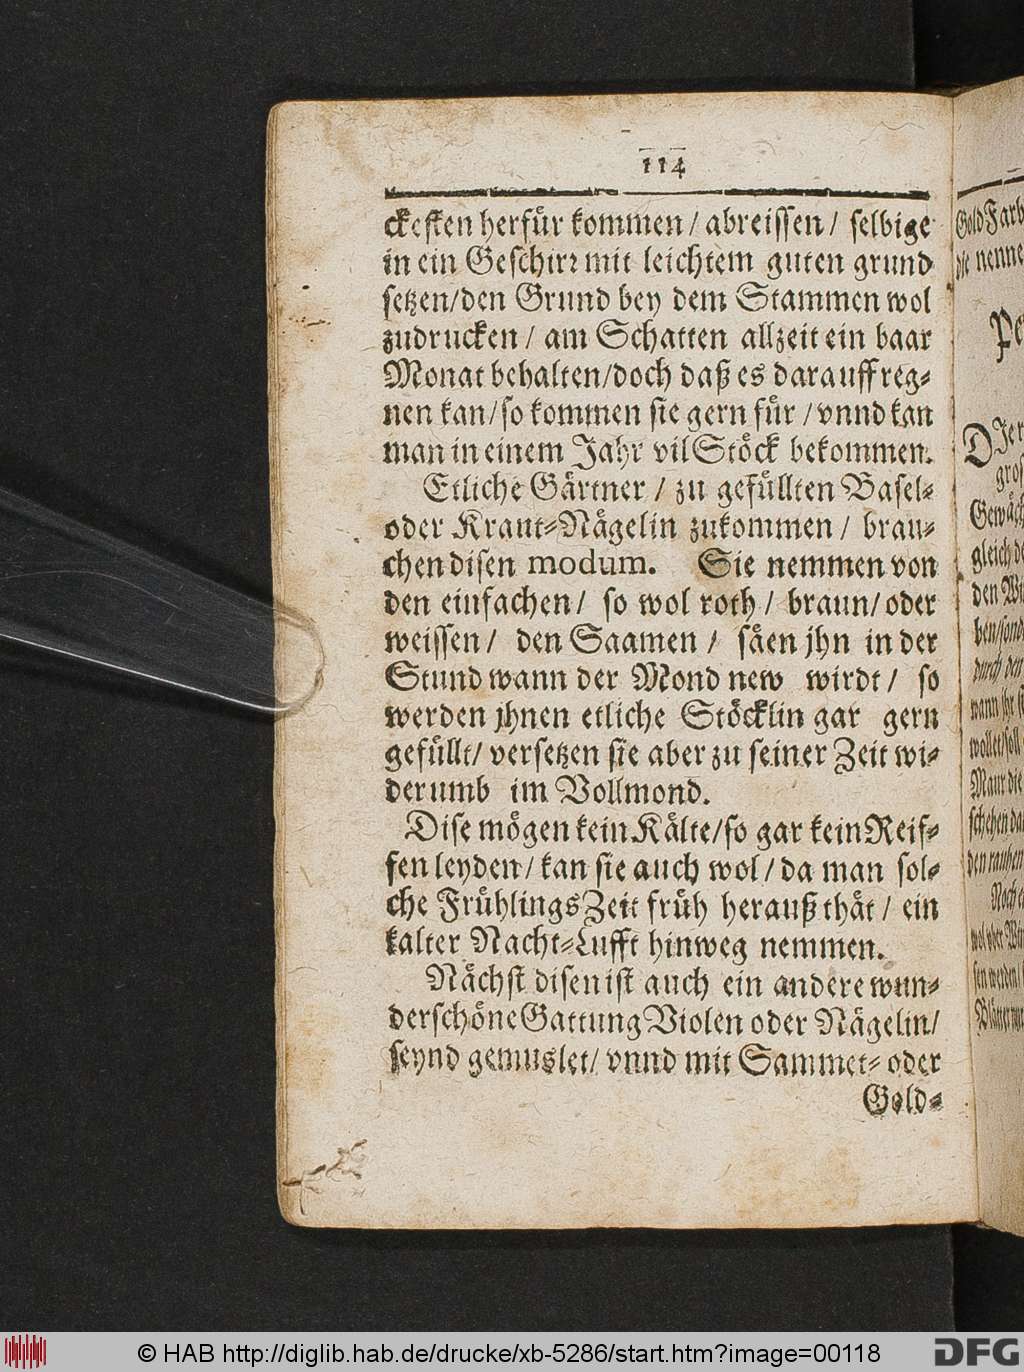 114
ckesten herfür kommen / abreissen / selbige
in ein Geschirr mit leichtem guten grund
setzen/den Grund bey dem Stammen wol
zudrucken / am Schatten allzeit ein baar
Monat behalten/doch daß es darauff reg-
nen kan/so kommen sie gern für / vnnd kan
man in einem Jahr vil Stöck bekommen.
Etliche Gärtner / zu gefüllten Basel-
oder Kraut-Nägelin zukommen / brau-
chen disen modum. Sie nemmen von
den einfachen/ so wol roth / braun/ oder
weissen / den Saamen / säen jhn in der
Stund wann der Mond new wirdt / so
werden jhnen etliche Stöcklin gar gern
gefüllt/ versetzen sie aber zu seiner Zeit wi-
derumb im Vollmond.
Dise mögen kein Kälte/so gar kein Reif-
fen leyden / kan sie auch wol / da man sol-
che Frühlings Zeit früh herauß thät / ein
kalter Nacht-Lufft hinweg nemmen.
Nächst disen ist auch ein andere wun-
derschöne Gattung Violen oder Nägelin/
seynd gemuslet/ vnnd mit Sammet- oder
Gold-
Gold Farb
die nenne
Pe
DJer
gros
Gewäch
gleich de
den Wi
ben/sond
durch den
wann jhr s
wollet/soll
Maur die
schehen da
den rauhen
© HAB http://diglib.hab.de/drucke/xb-5286/start.htm?image=00118
DFG